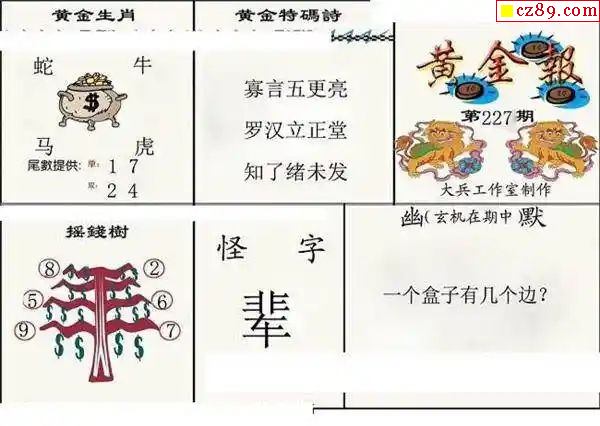 cz89.com
黄金生肖
蛇 牛
马 虎
尾數提供：單：1 7
双：2 4
黄金特碼詩
寡言五更亮
罗汉立正堂
知了绪未发
黄金報
第227期
大兵工作室制作
摇錢樹
⑧ ②
⑤ ⑥
⑨ ⑦
怪 字
辈
幽(玄机在期中)默
一个盒子有几个边?